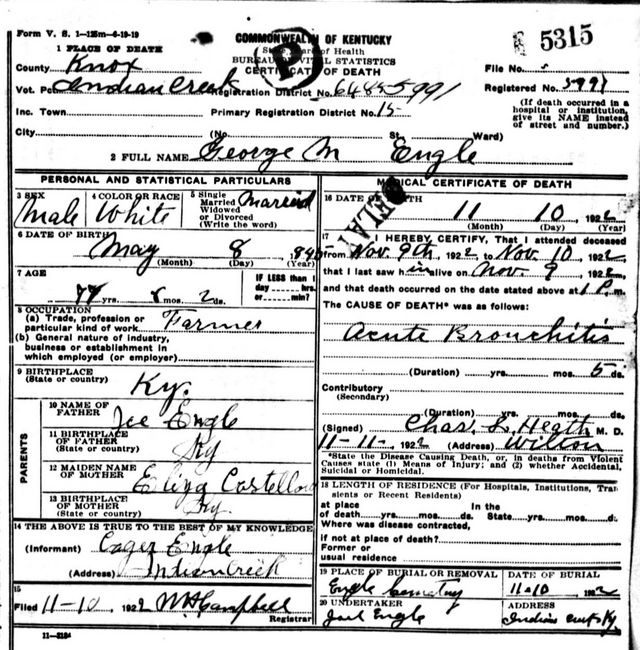 Form V. S. 1-125m-6-19-19
COMMONWEALTH OF KENTUCKY
State Board of Health
BUREAU OF VITAL STATISTICS
CERTIFICATE OF DEATH
5315
1 PLACE OF DEATH
County Knox
File No.
Vot. Pct. Indian Creek Registration District No. 5991
Registered No. 5991
Inc. Town Primary Registration District No. 15
(If death occurred in a hospital or institution, give its NAME instead of street and number.)
City (No. St. Ward)
2 FULL NAME George M Engle
PERSONAL AND STATISTICAL PARTICULARS
3 SEX Male
4 COLOR OR RACE White
5 Single Married Widowed or Divorced (Write the word) Married
6 DATE OF BIRTH May 8, 1845
(Month) (Day) (Year)
7 AGE 77 yrs. 6 mos. 2 ds.
IF LESS than 1 day hrs. or min.?
8 OCCUPATION
(a) Trade, profession or particular kind of work Farmer
(b) General nature of industry, business or establishment in which employed (or employer)
9 BIRTHPLACE
(State or country) Ky.
PARENTS
10 NAME OF FATHER Joe Engle
11 BIRTHPLACE OF FATHER
(State or country) Ky
12 MAIDEN NAME OF MOTHER Eliza
13 BIRTHPLACE OF MOTHER
(State or country) Ky.
14 THE ABOVE IS TRUE TO THE BEST OF MY KNOWLEDGE
(Informant) Cager Engle
(Address) Indian Creek
15
Filed 11-10, 1922 Campbell
Registrar
11-3184
MEDICAL CERTIFICATE OF DEATH
16 DATE OF DEATH 11 10, 1922
(Month) (Day) (Year)
17 I HEREBY CERTIFY, That I attended deceased
from Nov. 9th, 1922 to Nov. 10, 1922
that I last saw him alive on Nov. 9, 1922
and that death occurred on the date stated above at 1 P.m.
The CAUSE OF DEATH* was as follows:
Acute Bronchitis
(Duration) yrs. mos. 5 ds.
Contributory
(Secondary)
(Duration) yrs. mos. ds.
(Signed) Chas. L. Heath M. D.
11-11-, 1922 (Address) Wilton
*State the Disease Causing Death, or, in deaths from Violent
Causes state (1) Means of Injury; and (2) whether Accidental,
Suicidal or Homicidal.
18 LENGTH OF RESIDENCE (For Hospitals, Institutions, Transients or Recent Residents)
at place of death yrs. mos. ds. In the State yrs. mos. ds.
Where was disease contracted,
if not at place of death?
Former or usual residence
19 PLACE OF BURIAL OR REMOVAL Engle Cemetery
DATE OF BURIAL 11-10, 1922
20 UNDERTAKER Engle
ADDRESS Indian Ky